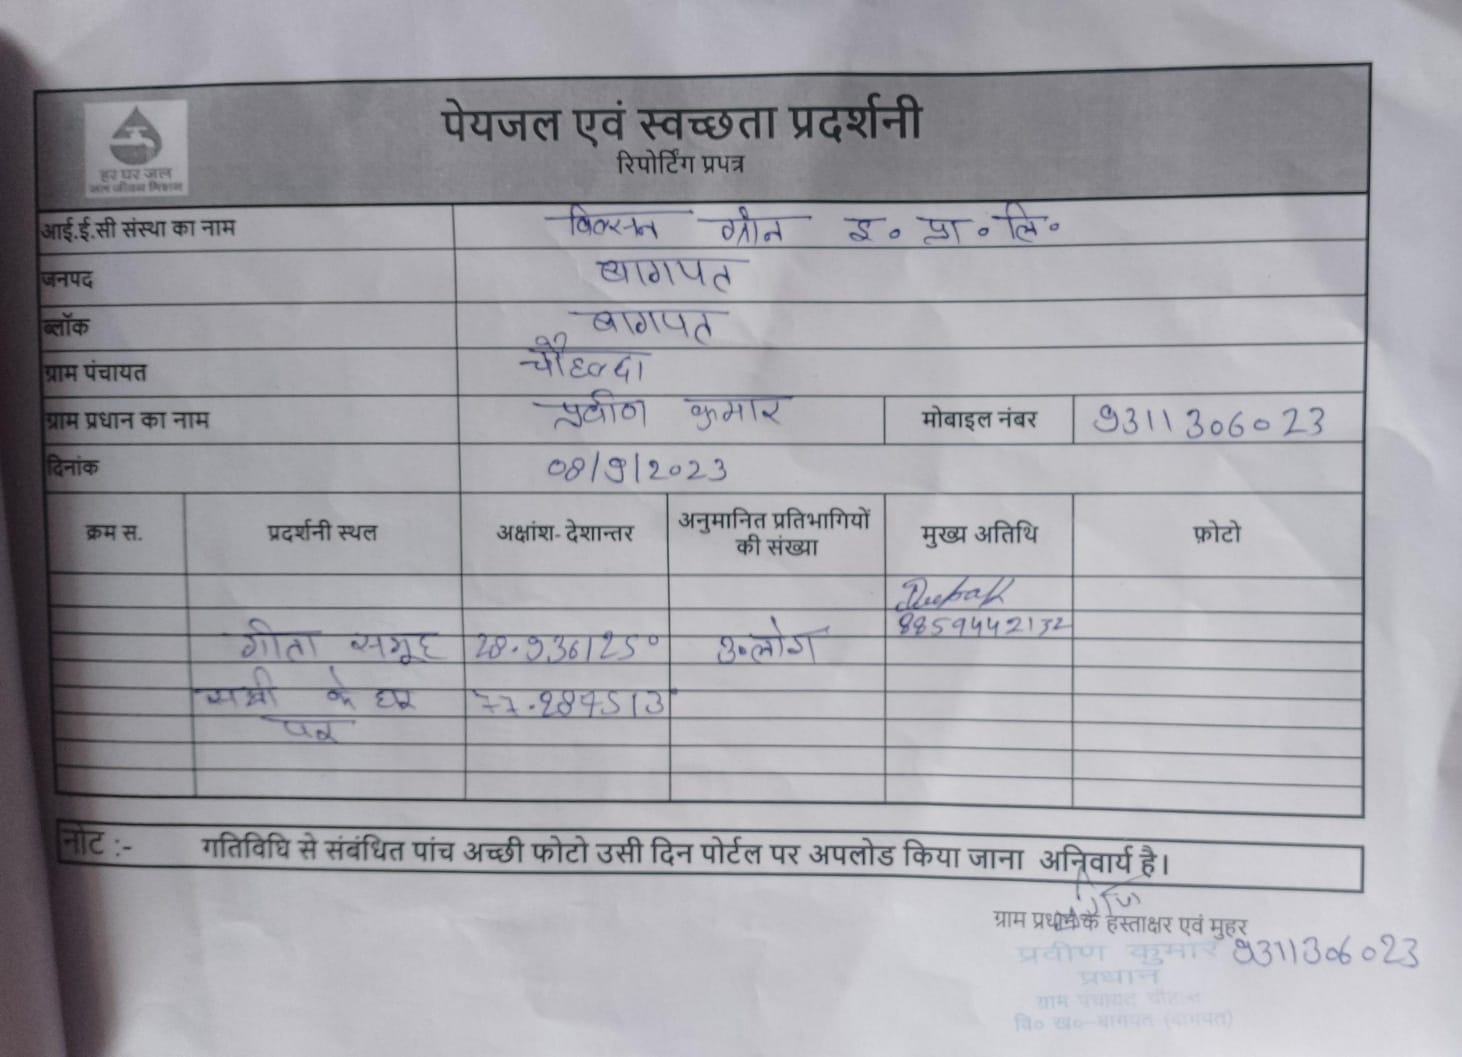 हर घर जल
जल जीवन मिशन
पेयजल एवं स्वच्छता प्रदर्शनी
रिपोर्टिंग प्रपत्र
आई.ई.सी संस्था का नाम विक्सन ग्रीन इ० प्रा० लि०
जनपद बागपत
ब्लॉक बागपत
ग्राम पंचायत
ग्राम प्रधान का नाम प्रवीण कुमार मोबाइल नंबर 9311306023
दिनांक 08/9/2023
क्रम स. प्रदर्शनी स्थल अक्षांश- देशान्तर अनुमानित प्रतिभागियों की संख्या मुख्य अतिथि फ़ोटो
Deepak
8859442132
गीता समूह 28.936125° लोग
सखी के घर
पर
नोट :- गतिविधि से संबंधित पांच अच्छी फोटो उसी दिन पोर्टल पर अपलोड किया जाना अनिवार्य है।
ग्राम प्रधान के हस्ताक्षर एवं मुहर
प्रवीण कुमार 9311306023
प्रधान
ग्राम पंचायत
वि० ख०-बागपत (बागपत)